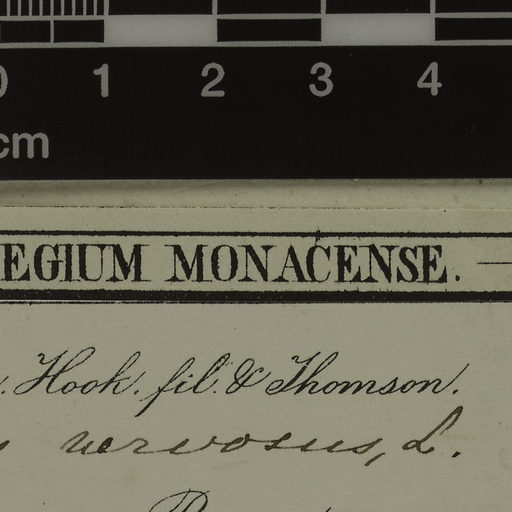 0 1 2 3 4
cm
EGIUM MONACENSE.
. Hook. fil. & Thomson.
nervosus, L.